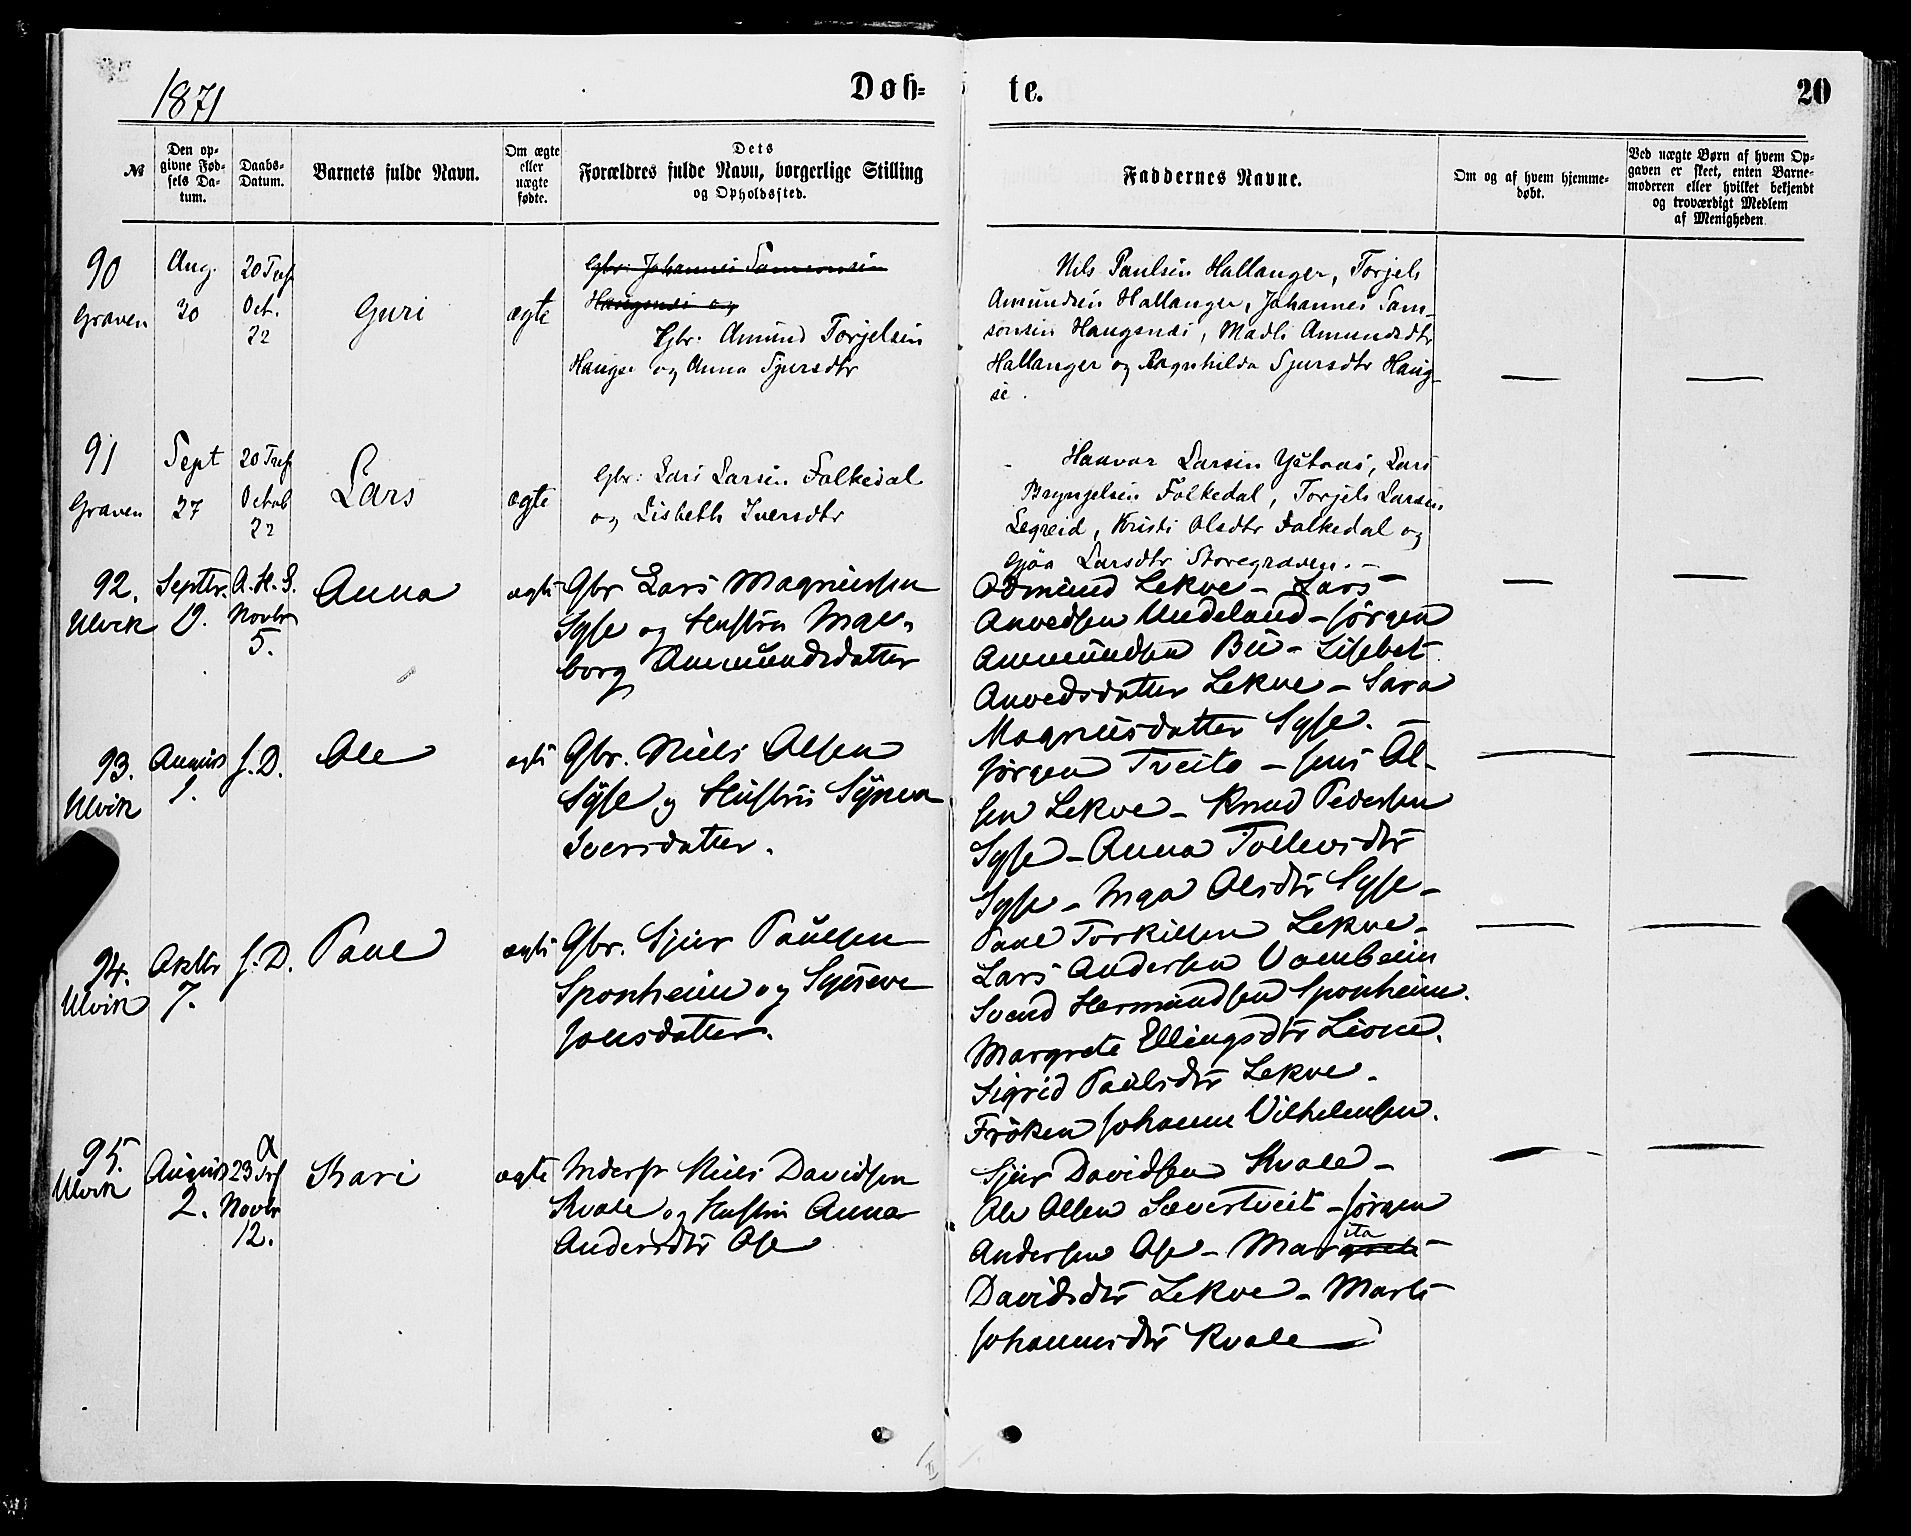 1871
Døb=
te.
20
№
Den op-
givne Fød-
sels Da-
tum.
Daabs-
Datum.
Barnets fulde Navn.
Om ægte
eller
uægte
fødte.
Dets
Forældres fulde Navn, borgerlige Stilling
og Opholdssted.
Faddernes Navne.
Om og af hvem hjemme-
døbt.
Ved uægte Børn af hvem Op-
gaven er skeet, enten Barne-
moderen eller hvilket bekjendt
og troværdigt Medlem
af Menigheden.
90
Graven
Aug.
20
20 Tref
Oct.
22
Guri
ægte
Gbr: Johannes Samsonsen
Haugsnes og
Gbr. Amund Torjelsen
Haugse og Anna Sjursdtr
Nils Paulsen Hallanger, Torjels
Amundsen Hallanger, Johannes Sam-
sonsen Haugsnes, Madli Amundsdtr
Hallanger og Ragnhilda Sjursdtr Haug-
se.
91
Graven
Sept
27
20 Tref
Octob
22
Lars
ægte
Gbr: Lars Larsen Folkedal
og Lisbeth Iversdtr
Haavar Larsen Ystaas, Lars
Bryngelsen Folkedal, Torjels Larsen
Legreid, Kristi Olsdtr Folkedal og
Gjøa Larsdtr Storegraven. -
92.
Ulvik
Septbr.
9.
A. H. D.
Novbr
5.
Anna
ægte
Gbr Lars Magnussen
Syse og Hustru Inge-
borg Ammundsdatter
Odmund Lekve - Lars
Anvedsen Undeland - Jørgen
Ammundsen Bu - Lisbet
Anvedsdatter Lekve - Sara
Magnusdatter Syse. -
93.
Ulvik
August
1.
s. D.
Ole
ægte
Gbr. Niels Olsen
Syse og Hustru Synva
Iversdatter.
Jørgen Tveito - Jens Ol-
sen Lekve - Knud Pedersen
Syse - Anna Tollevsdtr
Syse - Inga Olsdtr Syse -
94.
Ulvik
Oktbr
7.
s. D.
Paul
ægte
Gbr. Sjur Paulsen
Sponheim og Syneve
Jonsdatter.
Paul Torkilsen Lekve -
Lars Andersen Vambeim
Svend Hermundsen Sponheim.
Margrete Ellingsdtr Lione.
Sigrid Paulsdtr Lekve -
Frøken Johanne Vilhelmsen.
95.
Ulvik
August
2.
23 Tref
Novbr
12.
Kari
ægte
Inderst Niels Davidsen
Kvale og Hustru Anna
Andersdtr Ose
Sjur Davidsen Kvale -
Ole Olsen Sævertveit - Jørgen
Andersen Ose - Margrete ita -
Davidsdtr Lekve - Marta
Johannesdtr Kvale